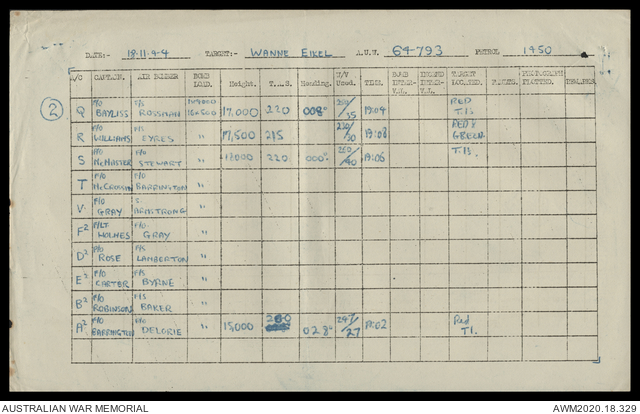 DATE:- 18.11.44 TARGET:- WANNE EIKEL A.U.W. 64793 PETROL 1450
A/C CAPTAIN. AIR BOMBER BOMB LOAD. Height. T.A.S. Heading. W/V Used. TIME. BOMB INTER- VAL. TARGET LOCATED. PHOTOGRAPH PLOTTED. REMARKS.
2
Q F/O BAYLISS F/S ROSSMAN 17,000 220 008° 250/35 19.04 RED T.I's
R F/O WILLIAMS F/S EYRES " 17,500 215 230/30 19.03 RED & GREEN
S F/O McMASTER F/O STEWART " 17000 220 000° 260/40 19.06 T.I's.
T F/O McCROSSIN F/O BARRINGTON "
V. F/O GRAY S. ARMSTRONG "
F² F/LT HOLMES F/O GRAY "
D² F/O ROSE F/S LAMBERTON "
E² F/O CARTER F/S BYRNE "
B² F/O ROBINSON F/S BAKER "
A² F/O BARRINGTON F/O DELORIE " 15,000 028° 247/27 19.02 Red T.I.
AUSTRALIAN WAR MEMORIAL AWM2020.18.329